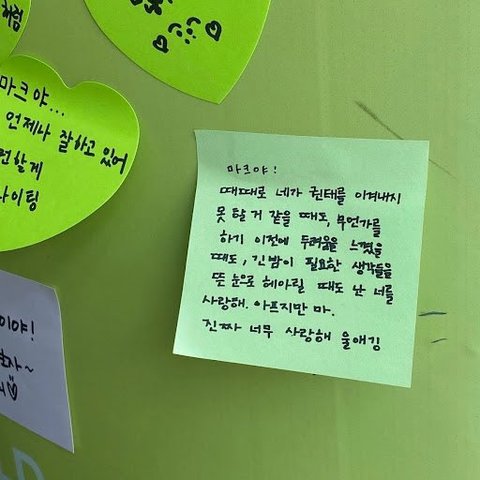 처럼
마크야...
언제나 잘하고 있어
전할게
파이팅
마크야!
때때로 네가 권태를 이겨내지
못 할 거 같을 때도, 무언가를
하기 이전에 두려움을 느꼈을
때도, 긴밤이 필요한 생각들을
뜬 눈으로 헤아릴 때도 난 너를
사랑해. 아프지만 마.
진짜 너무 사랑해 울애깅
이야!